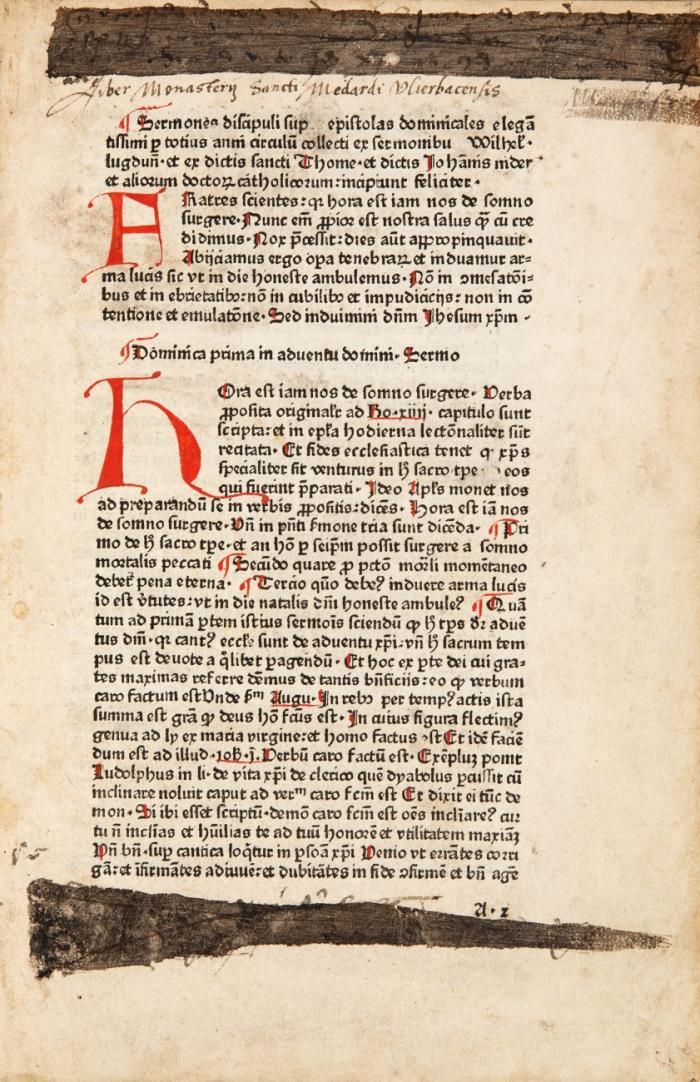 Liber Monasterij Sancti Medardi Vlierbacensis
¶ Sermones discipuli sup epistolas dominicales elegã
tissimi p totius anni circulũ collecti ex sermonibu Wilhel.
lugduñ. et ex dictis sancti Thome. et dictis Johãnis nider
et aliorum doctoꝝ catholicorum: incipiunt feliciter.
FRatres scientes: qꝛ hora est iam nos de somno
surgere. Nunc em̃ ꝓpior est nostra salus q̃ cũ cre
didimus. Nox p̃cessit: dies aũt appropinquauit.
Abijciamus ergo oꝑa tenebraꝝ et induamur ar⸗
ma lucis sic vt in die honeste ambulemus. Nõ in ꝯmesatõi⸗
bus et in ebrietatibꝰ: nõ in cubilibꝰ et impudicicijs: non in cõ
tentione et emulatõne. Sed induimini dñm Jhesum xp̃m.
¶ Dominica prima in aduentu domini. Sermo
HOra est iam nos de somno surgere. Verba
ꝓposita originalr̃ ad Ro. xiiij. capitulo sunt
scripta: et in epl̃a hodierna lectõnaliter sũt
recitata. Et fides ecclesiastica tenet ꝙ xp̃s
specialiter sit venturus in h̃ sacro tꝑe eos
qui fuerint p̃parati. Ideo Apl̃s monet nos
ad preparandũ se in verbis ꝓpositis: dicẽs. Hora est iã nos
de somno surgere. Vñ in pñti ẜmone tria sunt dicẽda. ¶ Pri
mo de h̃ sacro tꝑe. et an hõ ꝑ seip̃m possit surgere a somno
mortalis peccati ¶ Secũdo quare ꝓ pctõ mor̃li momẽtaneo
debeꝛ pena eterna. ¶ Tercio quõ debeꝰ induere arma lucis
id est v̓tutes: vt in die natalis dñi honeste ambuleꝰ ¶ Quã
tum ad primã ꝑtem istius sermoĩs sciendũ ꝙ h̃ tꝑs dꝛ aduẽ
tus dñi. qꝛ cantꝰ eccl̃e sunt de aduentu xp̃i. vñ h̃ sacrum tem
pus est deuote a q̃libet ꝑagendũ. Et hoc ex ꝑte dei cui gra⸗
tes maximas referre dẽmus de tantis bñficijs: eo ꝙ verbum
caro factum est Vnde ẜm Augu. In rebꝰ per tempꝰ actis ista
summa est grã ꝙ deus hõ fcũs est. In cuius figura flectimꝰ
genua ad ly ex maria virgine: et homo factus est Et idẽ faciẽ
dum est ad illud. ioh̃. j. Verbũ caro factũ est. Exẽpluꝫ ponit
Ludolphus in li. de vita xp̃i de clerico quẽ dyabolus ꝑcussit cũ
inclinare noluit caput ad verᵐ caro fcm̃ est Et dixit ei tũc de
mon. Si ibi esset scriptũ. demõ caro fcm̃ est oẽs inclĩareꝰ cur
tu ñ inclĩas et hũilias te ad tuũ honorẽ et vtilitatem maxiãꝫ
Vñ bñ. suꝑ cantica loq̃tur in ꝑsoã xp̃i Venio vt errãtes corri
gã: et ĩfirmãtes adiuuẽ: et dubitãtes in fide ꝯfirmẽ et bñ agẽ
A. 2